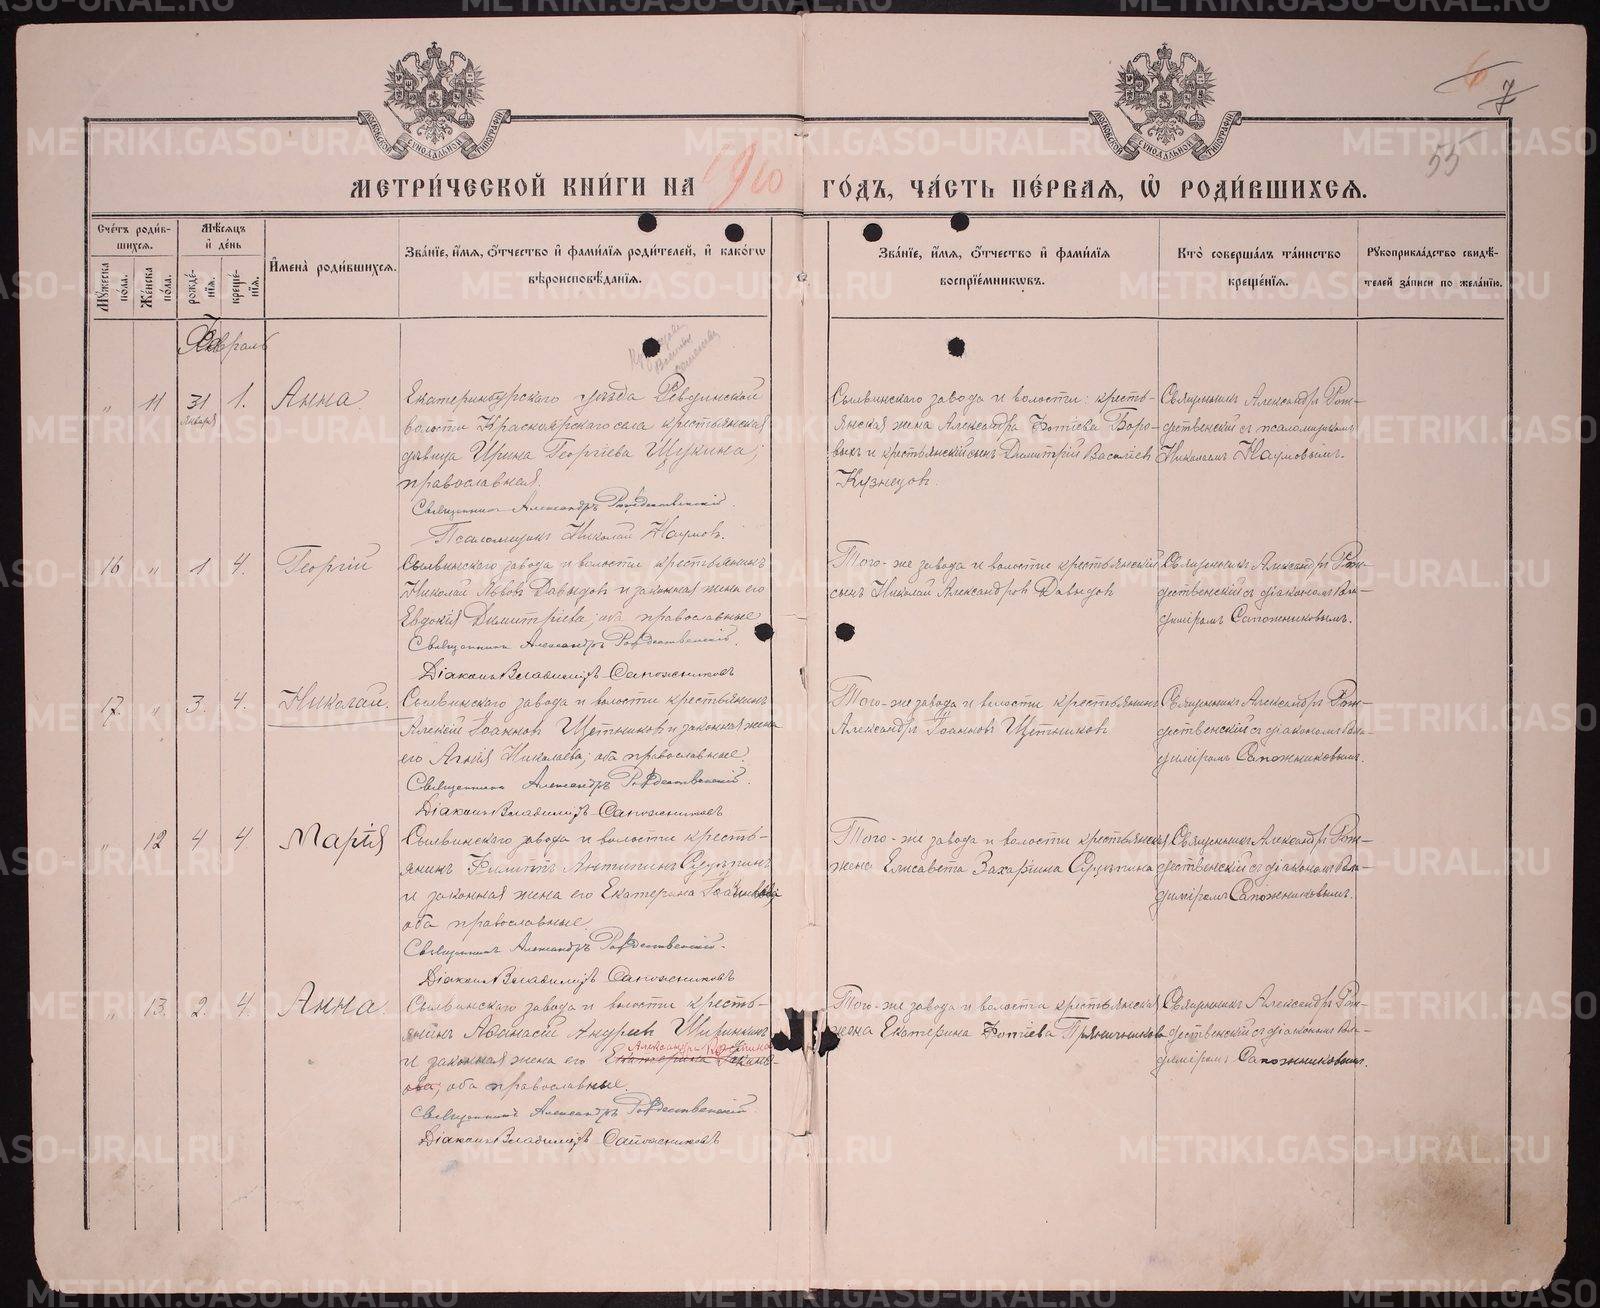 6
7
55
МОСКОВСКОЙ СѴНОДАЛЬНОЙ ТИПОГРАФІИ
МОСКОВСКОЙ СѴНОДАЛЬНОЙ ТИПОГРАФІИ
МЕТРИ́ЧЕСКОЙ КНИ́ГИ НА 1910 ГО́ДЪ, ЧА́СТЬ ПЕ́РВАЯ, Ѡ҆ РОДИ́ВШИХСЯ.
Сче́тъ роди́в-
шихся.
Му́жеска по́ла.
Же́нска по́ла.
Мѣ́сяцъ
и҆ де́нь
рожде́-
нїя.
креще́-
нїя.
И҆мена̀ роди́вшихся.
Зва́нїе, и҆́мя, ѻ҆́тчество и҆ фами́лїя роди́телей, и҆ како́гѡ
вѣроисповѣ́данїя.
Зва́нїе, и҆́мя, ѻ҆́тчество и҆ фами́лїя
воспрїе́мникѡвъ.
Кто̀ соверша́лъ та́инство
креще́нїя.
Рꙋкоприкла́дство свидѣ́-
телей за́писи по жела́нїю.
Февраль
" 11 31 января 1. Анна
Екатеринбурскаго уѣзда Ревдинской
волости Красноярскаго села крестьянская
дѣвица Ирина Георгіева Щукина;
православная.
Священникъ Александръ Рождественскій
Псаломщикъ Николай Наумовъ.
Сылвинскаго завода и волости: кресть-
янская жена Александра Фотіева Боро-
выхъ и крестьянскій сынъ Димитрій Васильевъ
Кузнецовъ.
Священникъ Александръ Рож-
дественскій съ псаломщикомъ
Николаемъ Наумовымъ.
16 " 1 4. Георгій
Сылвинскаго завода и волости крестьянинъ
Николай Львовъ Давыдовъ и законная жена его
Евдокія Димитріева; оба православные
Священникъ Александръ Рождественскій
Діаконъ Владимиръ Сапожниковъ
Того-же завода и волости крестьянскій
сынъ Николай Александровъ Давыдовъ
Священникъ Александръ Рож-
дественскій съ діакономъ Вла-
диміромъ Сапожниковымъ.
17. " 3. 4. Николай.
Сылвинскаго завода и волости крестьянинъ
Алексій Іоанновъ Щетниковъ и законная жена
его Агнія Николаева; оба православные.
Священникъ Александръ Рождественскій.
Діаконъ Владимиръ Сапожниковъ
Того-же завода и волости крестьянинъ
Александръ Іоанновъ Щетниковъ
Священникъ Александръ Рож-
дественскій съ діакономъ Вла-
диміромъ Сапожниковымъ.
" 12 4 4 Марія
Сылвинскаго завода и волости кресть-
янинъ Филиппъ Антипинъ
и законная жена его Екатерина Іоакимова
оба православные.
Священникъ Александръ Рождественскій.
Діаконъ Владимиръ Сапожниковъ
Того-же завода и волости крестьянская
жена Елисавета Захаріина
Священникъ Александръ Рож-
дественскій съ діакономъ Вла-
диміромъ Сапожниковымъ.
" 13. 2. 4. Анна.
Сылвинскаго завода и волости кресть-
янинъ Афанасій Ширинкинъ
Александра
и законная жена его Екатерина
ова; оба православные.
Священникъ Александръ Рождественскій.
Діаконъ Владимиръ Сапожниковъ
Того-же завода и волости крестьянская
жена Екатерина Фотіева Пряничникова
Священникъ Александръ Рож-
дественскій съ діакономъ Вла-
диміромъ Сапожниковымъ.
METRIKI.GASO-URAL.RU